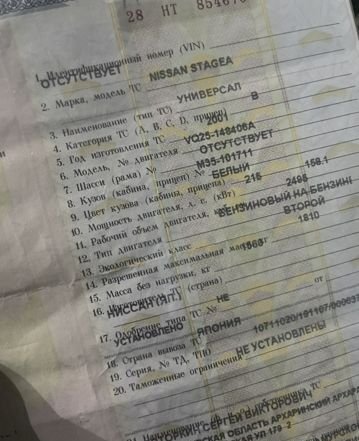 28 НТ 854676
1. Идентификационный номер (VIN)
ОТСУТСТВУЕТ
2. Марка, модель ТС NISSAN STAGEA
3. Наименование (тип ТС) УНИВЕРСАЛ
4. Категория ТС (А, В, С, D, прицеп) В
5. Год изготовления ТС 2001
6. Модель, № двигателя VQ25-148406A
7. Шасси (рама) № ОТСУТСТВУЕТ
8. Кузов (кабина, прицеп) № M35-101711
9. Цвет кузова (кабины, прицепа) БЕЛЫЙ
10. Мощность двигателя, л. с. (кВт) 215 158.1
11. Рабочий объем двигателя, куб. 2495
12. Тип двигателя БЕНЗИНОВЫЙ НА БЕНЗИНЕ
13. Экологический класс ВТОРОЙ
14. Разрешенная максимальная масса, кг 1810
15. Масса без нагрузки, кг
16. Изготовитель ТС (страна)
НИССАН
17. Одобрение типа ТС № НЕ от
УСТАНОВЛЕНО
18. Страна вывоза ТС ЯПОНИЯ
19. Серия, № ТД, ТПО
20. Таможенные ограничения НЕ УСТАНОВЛЕНЫ
СЕРГЕЙ ВИКТОРОВИЧ
ОБЛАСТЬ АРХАРИНСКИЙ